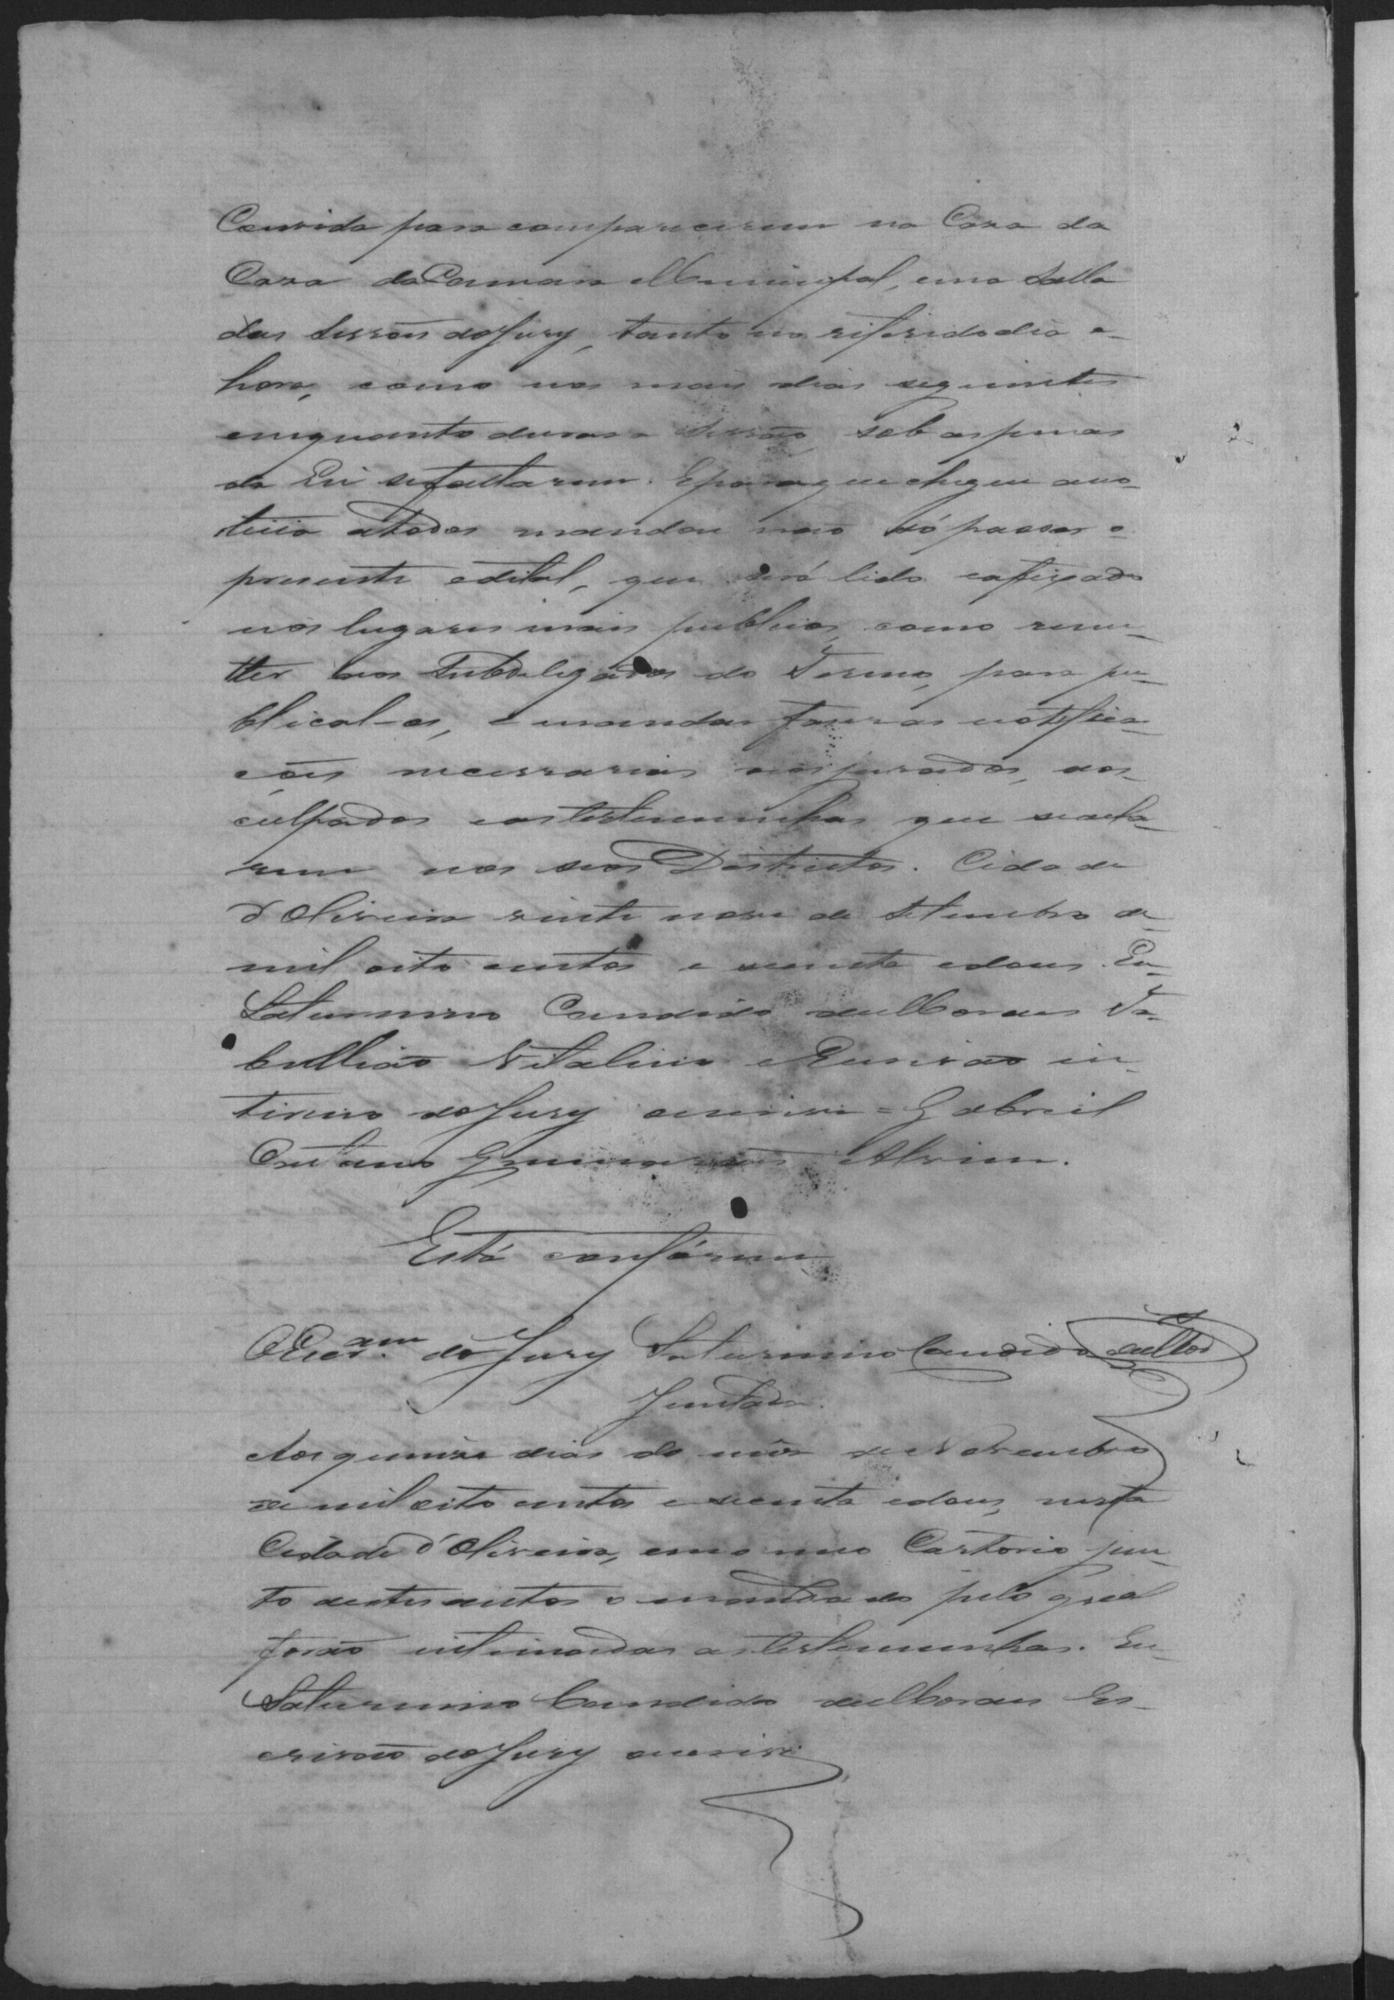 Convida para comparecerem na Caza da
Caza da Camara Municipal, em a Salla
das Sessões do Jury, tanto no referido dia e
hora, como nos mais dias seguintes
emquanto durar a Sessão, sob as penas
da Lei se faltarem. E para que chegue a no-
ticia a todos mandou não só passar o
presente edital, que será lido e afixado
nos lugares mais publicos, como reme-
tter aos Subdelegados do Termo, para pu-
blical-os, e mandar fazer as notifica-
ções necessarias aos jurados, aos
culpados e as testemunhas que se acha-
rem nos seos Destrictos. Cidade
d'Oliveira vinte nove de Setembro de
mil oito centos e secenta e dous. Eu
Saturnino Candido de Moraes Ta-
bellião Vitalicio e Escrivão in-
terino do Jury escrevi = Gabriel
Caetano Guimarães Alvim.
Está confórme
O Escr.am do Jury Saturnino Candido de Mor
Juntada.
Aos quinze dias do mês de Novembro
de mil oito centos e secenta e dous, nesta
Cidade d'Oliveira, em o meo Cartorio jun-
to a estes autos o mandado pelo qual
forão intimadas as testemunhas. Eu
Saturnino Candido de Moraes Es-
crivão do Jury escrevi